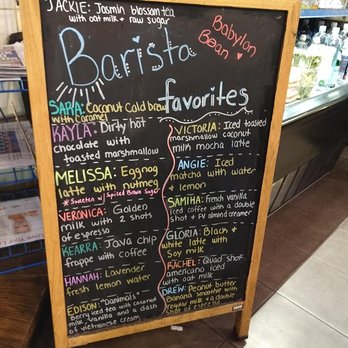 JACKIE: Jasmin blossom tea
with oat milk + raw sugar
Babylon
Bean
Barista
favorites
SARA: Coconut Cold brew
with caramel
KAYLA: Dirty hot
chocolate with
toasted marshmallow
MELISSA: Eggnog
latte with nutmeg
* Sweeten w/ Spiced Brown Sugar
VERONICA: Golden
milk with 2 shots
of espresso
KEARRA: Java chip
frappe with coffee
HANNAH: Lavender
fresh lemon water
EDISON: "Danimals"
Berry iced tea with coconut
milk, vanilla and a dash
of vietnamese cream
VICTORIA: Iced toasted
marshmallow coconut
milk mocha latte
ANGIE: Iced
matcha with water
+ lemon
SAMIHA: french vanilla
Iced coffee with a double
shot + FV almond creamer
GLORIA: Black +
white latte with
Soy milk
RACHEL: Quad shot
americano iced
with oat milk
DREW: Peanut butter
Banana smoothie with
regular milk + a double
shot of espresso